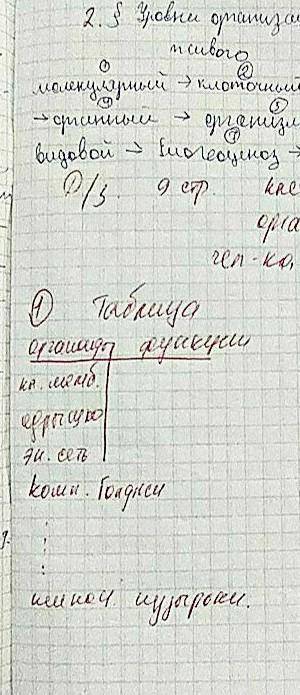 2. § Уровни организа
живого
① ②
молекулярный → клеточный
④ ⑤
→ органный → организм
⑦
видовой → биогеоценоз →
D/з. 9 стр. кле
орга
чел-ка,
① Таблица
органоиды функции
кл. мемб.
ядрышко
эн. сеть
комп. Гольджи
пиноц. пузырьки.